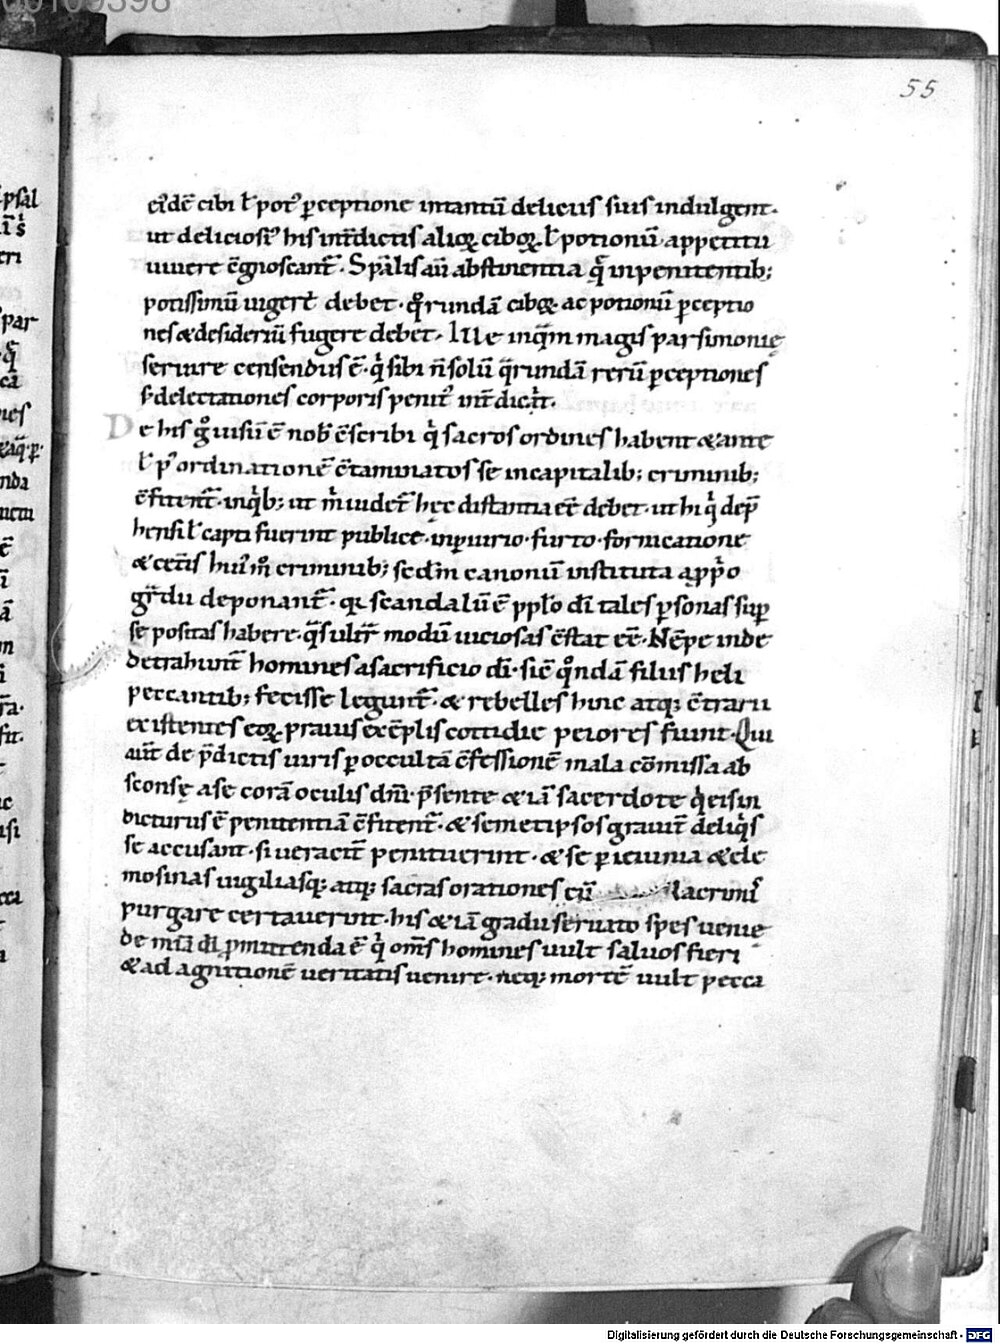 55
ei᷒dē cibi ł pot᷒ ꝑceptione intantū deliciis suis indulgent·
ut deliciosi᷒ his int̄dictis alioꝝ ciboꝝ· ł potionū appetitu
uiuere c̄gnoscant᷑· Spālis aū abstinentia q̄ inpenitentib;
potissimū uigere debet· qͦrundā ciboꝝ ac potionū ꝑceptio
nes & desideriū fugere debet· Ille inqͣm magis parsimonię
seruire censendus ē· qͥ sibi n̄ solū qͣrundā rerū ꝑceptiones
s; delectationes corporis penit᷒ int̄dicit·
De his gͦ uisū ē nob̄ c̄scribi qͥ sacros ordines habent & ante
ł p᷒ ordinationē c̄taminatos se incapitalib; criminib;
c̄fitent᷑· inqͥb; ut m̄ uidet᷑ hęc distantia eē debet· ut hi qͥ dep̄
hensi ł capti fuerint publice· inꝑiurio· furto· fornicatione
& cet̄is hui᷒mͦ criminib; scdm canonū instituta a ꝓprio
gͣdu deponant᷑· qͥ scandalū ē ppło dī tales ꝑsonas suꝑ
se positas habere· qͣs ultͣ modū uiciosas c̄stat eē· Nēpe inde
detrahunt᷑ homines a sacrificio dī· sic̄ qͦndā filiis heli
peccantib; fecisse legunt᷑· & rebelles hinc atq; c̄trarii
existentes eoꝝ prauis exēplis cottidie peiores fiunt· Qui
aut̄ de p̄dictis uiris ꝑ occultā c̄fessionē mala cōmissa ab
sconsę a se corā oculis dn̄i· p̄sente & iā sacerdote qͥ eis in
dicturus ē penitentiā c̄fitent᷑· & semetipsos grauit̄ deliqͥs
se accusant· si ueracit̄ penituerint· & se ꝑ ieiunia & ele
mosinas uigiliasq; atq; sacras orationes cū lacrimis
purgare certauerint· his & iā gradu seruato spes uenię
de mīa dī ꝓmittenda ē qͥ om̄s homines uult saluos fieri
& ad agnitionē ueritatis uenire· neq; mortē uult pecca
Digitalisierung gefördert durch die Deutsche Forschungsgemeinschaft - DFG